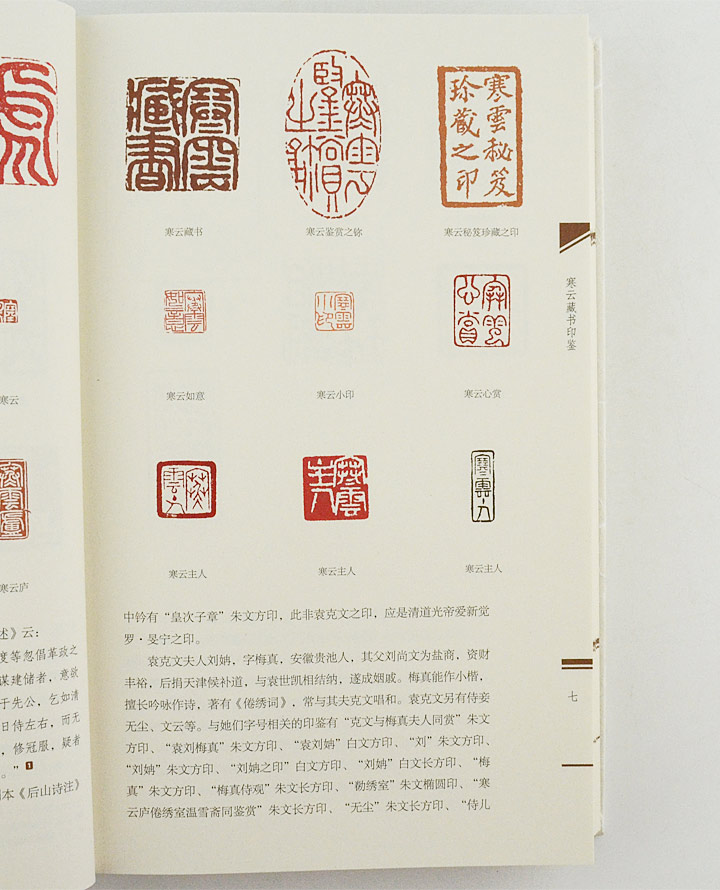 寒云
寒云庐
述》云：
度等忽倡革政之
谋建储者，意欲
于先公，乞如清
日侍左右，而无
，修冠服，疑者
。”1
本《后山诗注》
寒雲
藏書
寒雲秘笈
珍藏之印
寒云藏书
寒云鉴赏之弥
寒云秘笈珍藏之印
寒云如意
寒云小印
寒云心赏
寒云主人
寒云主人
寒云主人
中钤有“皇次子章”朱文方印，此非袁克文之印，应是清道光帝爱新觉
罗·旻宁之印。
袁克文夫人刘姌，字梅真，安徽贵池人，其父刘尚文为盐商，资财
丰裕，后捐天津候补道，与袁世凯相结纳，遂成姻戚。梅真能作小楷，
擅长吟咏作诗，著有《倦绣词》，常与其夫克文唱和。袁克文另有侍妾
无尘、文云等。与她们字号相关的印鉴有“克文与梅真夫人同赏”朱文
方印、“袁刘梅真”朱文方印、“袁刘姌”白文方印、“刘”朱文方印、
“刘姌”朱文方印、“刘姌之印”白文方印、“刘姌”白文长方印、“梅
真”朱文方印、“梅真侍观”朱文长方印、“勌绣室”朱文椭圆印、“寒
云庐倦绣室温雪斋同鉴赏”朱文长方印、“无尘”朱文长方印、“侍儿
寒云藏书印鉴
七